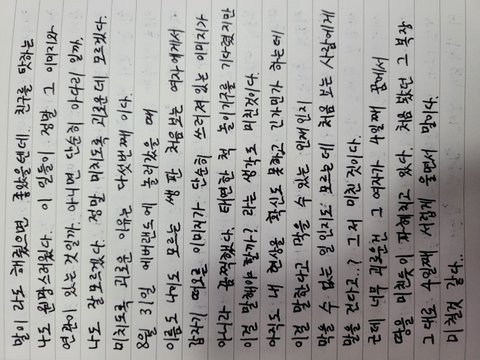 말이라도 해줬으면 좋았을텐데. 친구를 탓하는
나도 원망스러웠다. 이 일들이 정말 그 이미지와
연관이 있는 것일까. 아니면 단순히 아다리 일까.
나도 잘 모르겠다. 정말 미치도록 괴로운데 모르겠다.
미치도록 괴로운 이유는 다섯번째 이다.
8월 31일 에버랜드에 놀러갔을 때
이름도 나이도 모르는 생판 처음보는 여자에게서
갑자기 떠오른 이미지가 단순히 쓰러져 있는 이미지가
아니라 끔찍했다. 태연한 척 놀이기구를 기다렸지만
이걸 말해야 할까? 라는 생각도 미친것이다.
아직도 내 현상을 확신도 못하고 긴가민가 하는데
이걸 말한다고 막을 수 있는 일인지
막을 수 없는 일인지도 모르는데 처음 보는 사람에게
말을 건다고..? 그저 미친 것이다.
근데 너무 괴로운건 그 여자가 4일째 꿈에서
땅을 미친듯이 파헤치고 있다. 처음 봤던 그 복장
그대로 4일째 서럽게 울면서 말이다.
미칠것 같다..